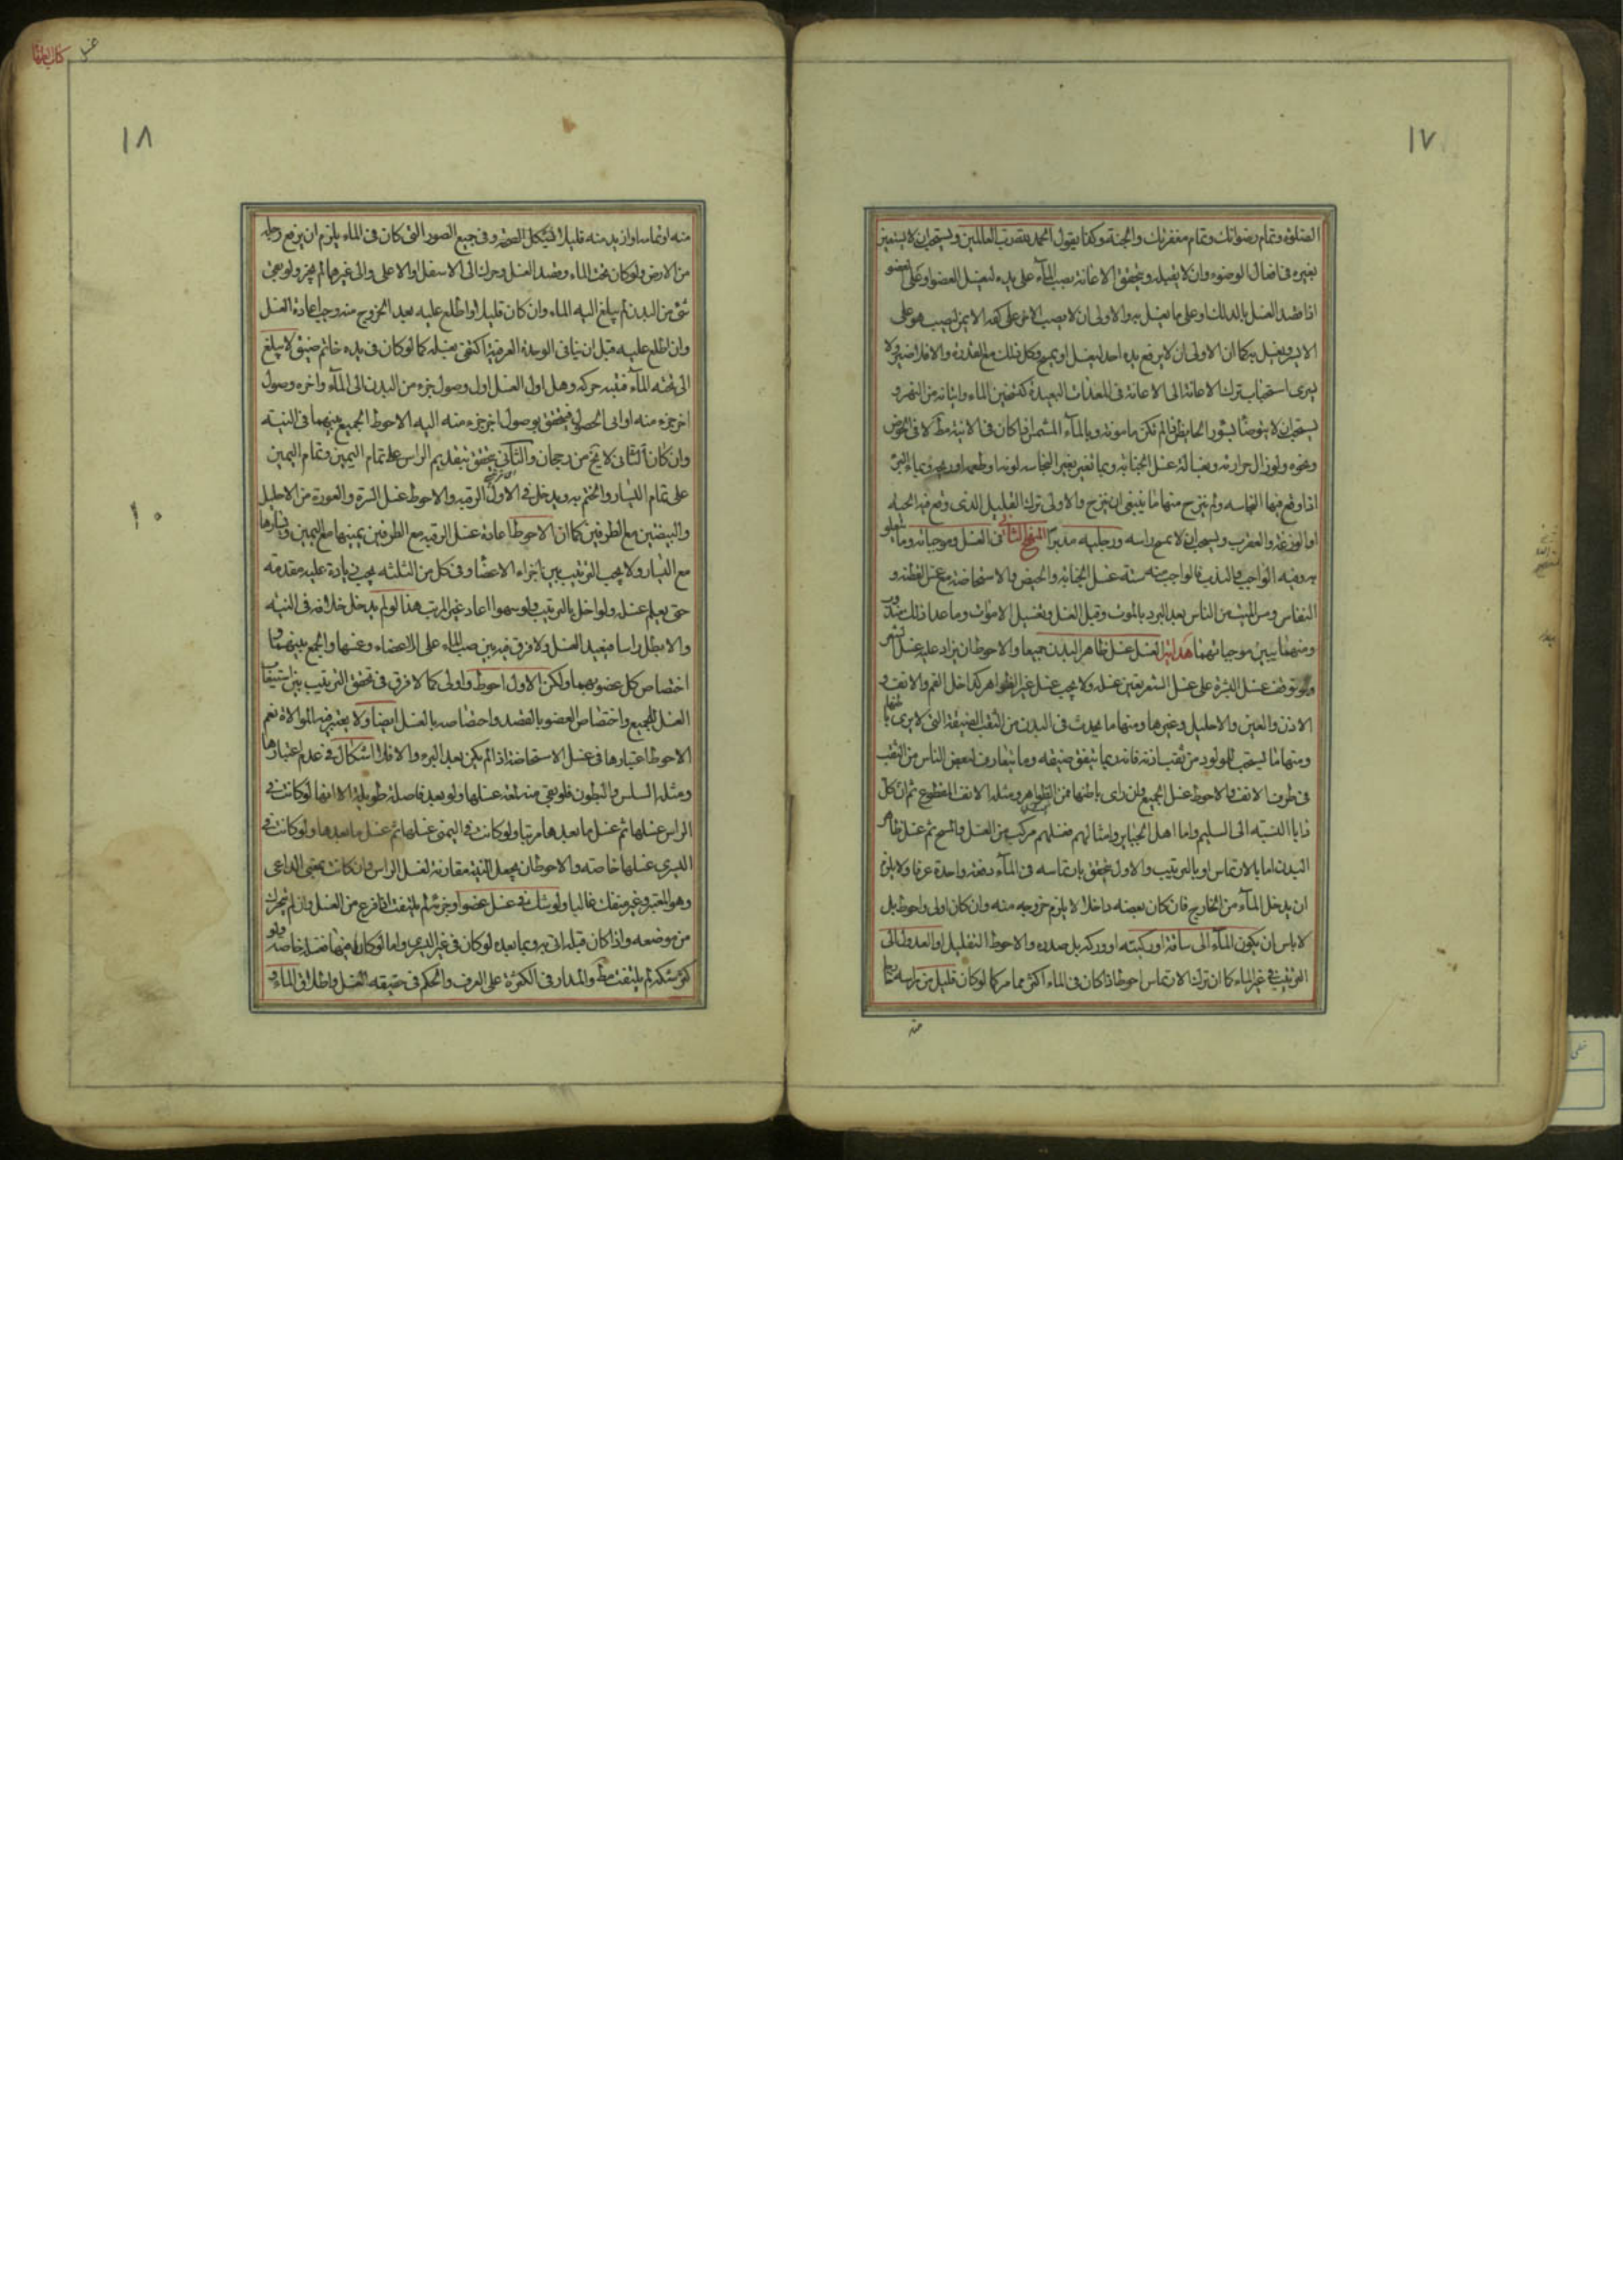 ١٧
الصلوة وتمام رضوانك وتمام مغفرتك والجنة وكذا يقول الحمد لله رب العالمين ويستحب ان لا يستعين
بغيره في افعال الوضوء وان لا يقبله ويتحقق الاعانة بصب الماء على يده ليغسل العضو او على العضو
اذا قصد الغسل بالدلك او على ما يغسل به والاولى ان لا يصب الاخر على كفه الايمن ليصب هو على
الايسر ويغسل به كما ان الاولى ان لا يرفع يده احد ليغسل او يمسح وكل ذلك مع القدرة والا فلا ضير ولا
يسرى استحباب ترك الاعانة الى الاعانة في المعدات البعيدة كتسخين الماء واتيانه من النهر و
يستحب ان لا يتوضأ بسؤر الحايض اذا لم تكن مامونة وبالماء المشمس اذا كان في الانية مط لا في الحوض
ونحوه ولو زال حرارته وبغسالة غسل الجنابة وبما تغير بغير النجاسة لونه او طعمه او ريحه وبماء البئر
اذا وقع فيها النجاسة ولم ينزح منها ما ينبغي ان ينزح والاولى ترك القليل الذي وقع فيه الحية
او الوزغة والعقرب ويستحب ان لا يمسح راسه ورجليه مدبرا المنهج الثاني في الغسل وموجباته وما يتعلق
به وفيه الواجب والندب فالواجب منه ستة غسل الجنابة والحيض والاستحاضة مع غمس القطنة و
النفاس ومس الميت من الناس بعد البرد بالموت وقبل الغسل وتغسيل الاموات وما عدا ذلك مندوب
ومنهما يبين موجباتهما هداية الغسل غسل ظاهر البدن جميعا والاحوط ان يزاد عليه غسل الشعر
ولو توقف غسل البشرة على غسل الشعر تعين غسله ولا يجب غسل غير الظواهر كداخل الفم والانف و
الاذن والعين والاحليل وغيرها ومنها ما يحدث في البدن من الثقب الضيقة التي لا يرى باطنها
ومنها ما يستحب للمولود من ثقب اذنه فانه ربما يتفق ضيقه وما يتعارف لبعض الناس من الثقب
في طرف الانف والاحوط غسل الجميع ولن راى باطنها فمن الظواهر ومثله الانف المقطوع ثم ان كل
ذا بالنسبة الى السليم واما اهل الجباير وامثالهم فغسلهم مركب من الغسل والمسح ثم غسل ظاهر
البدن اما بالارتماس او بالترتيب والاول يتحقق بارتماسه في الماء دفعة واحدة عرفا ولا يلزم
ان يدخل الماء من الخارج فان كان بعضه داخلا لا يلزم خروجه منه وان كان اولى واحوط بل
لا باس ان يكون الماء الى ساقه او ركبته او وركه بل صدره والاحوط التقليل او العدول الى
الترتيب في غير الماء كما ان ترك الارتماس احوط اذا كان في الماء اكثر مما مر كما لو كان قليل من راسه خارجا
منه
كتاب الطهارة
غسل
١٨
منه او تمامه او ازيد منه قليلا في كل الصور وفي جميع الصور التي كان في الماء يلزم ان يرفع رجله
من الارض ولو كان تحت الماء وقصد الغسل وحرك الى الاسفل او الاعلى والى غيرهما لم يجز ولو بقي
شئ من البدن لم يبلغ اليه الماء وان كان قليلا او اطلع عليه بعد الخروج منه وجب اعادة الغسل
وان اطلع عليه قبل ان ينافي الوحدة العرفية اكتفى بغسله كما لو كان في يده خاتم ضيق لا يبلغ
الى تحته الماء فنبه حركه وهل اول الغسل اول وصول جزء من البدن الى الماء واخره وصول
اخر جزء منه او اني الحصول فيتحقق بوصول اخر جزء منه اليه الاحوط الجمع بينهما في النية
وان كان الثاني لا يخ من رجحان والثاني يتحقق بتقديم الراس على تمام اليمين وتمام اليمين
على تمام اليسار والختم به ويدخل في الاول الرقبة والاحوط غسل السرة والعورة من الاحليل
والبيضتين مع الطرفين كما ان الاحوط اعادة غسل الرقبة مع الطرفين يمينها مع اليمين ويسارها
مع اليسار ولا يجب الترتيب بين اجزاء الاعضاء وفي كل من الثلثة يجب زيادة عليه مقدمة
حتى يعلم غسله ولو اخل بالترتيب ولو سهوا اعاد غير المرتب هذا لو لم يدخل خلافه في النية
والا بطل راسا فيعيد الغسل ولا فرق فيه بين صب الماء على الاعضاء وغمسها والجمع بينهما و
اختصاص كل عضو بهما ولكن الاول احوط واولى كما لا فرق في تحقق الترتيب بين استيفاء
الغسل للجميع واختصاص العضو بالقصد واختصاصه بالغسل ايضا ولا يعتبر فيه الموالاة نعم
الاحوط اعتبارها في غسل الاستحاضة اذا لم يكن بعد البرء والا فلا اشكال في عدم اعتبارها
ومثله السلس والبطون فلو بقي منه لمعة غسلها ولو بعد فاصلة طويلة الا انها لو كانت في
الراس غسلها ثم غسل ما بعدها مرتبا ولو كانت في اليمنى غسلها ثم غسل ما بعدها ولو كانت في
اليسرى غسلها خاصة والاحوط ان يجعل النية مقارنة لغسل الراس وان كانت بمعنى الداعي
وهو المعتبر وغير منفك غالبا ولو شك في غسل عضو او جزئه لم يلتفت اذا فرغ من الغسل وان لم يتحرك
من موضعه واذا كان قبله اتى به وبما بعده لو كان في غير اليسرى واما لو كان منها فغسله خاصة ولو
كثر شكه لم يلتفت مط والمدار في الكثرة على العرف والحكم في حقيقة الغسل واطلاق الماء و
١٠